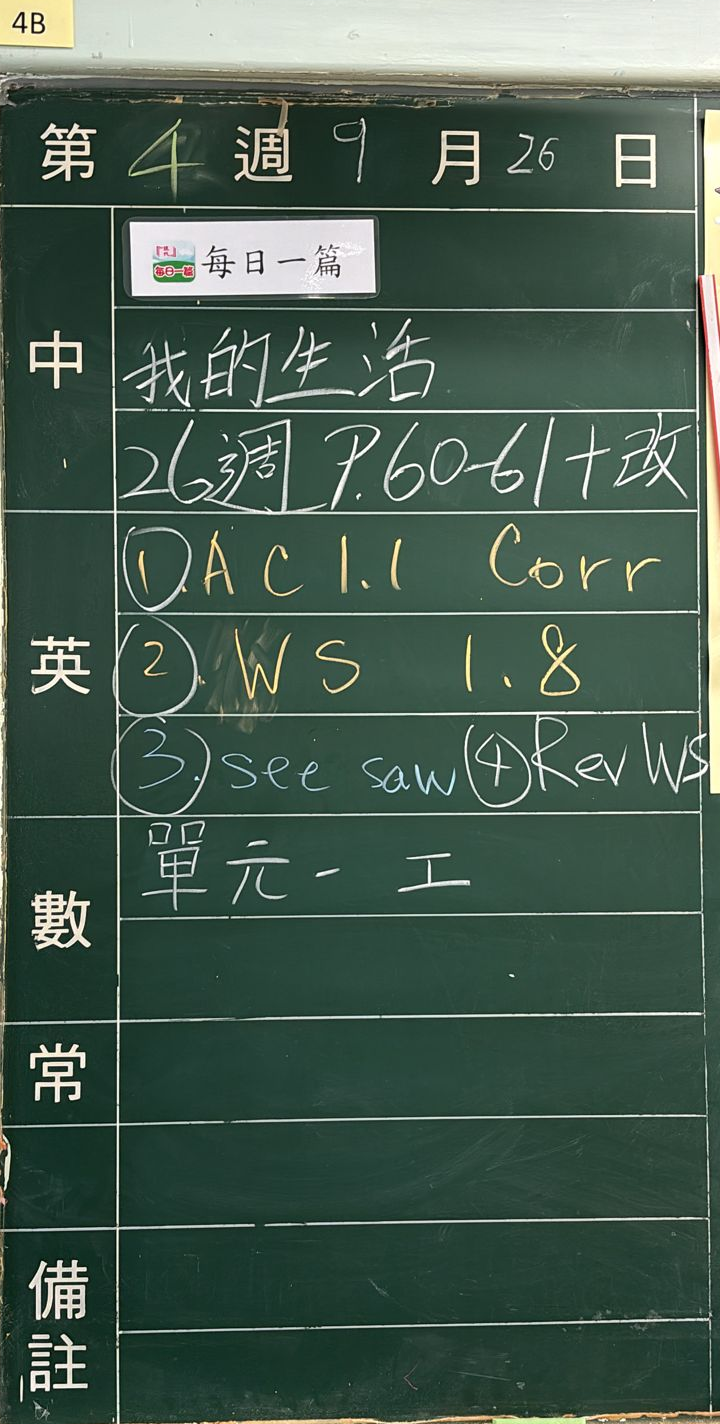 4B
第 4 週 9 月 26 日
中
每日一篇 每日一篇
我的生活
26週 P.60-61+改
英
①.AC1.1 Corr
②.WS 1.8
③.see saw ④Rev WS
數
單元一 工
常
備註